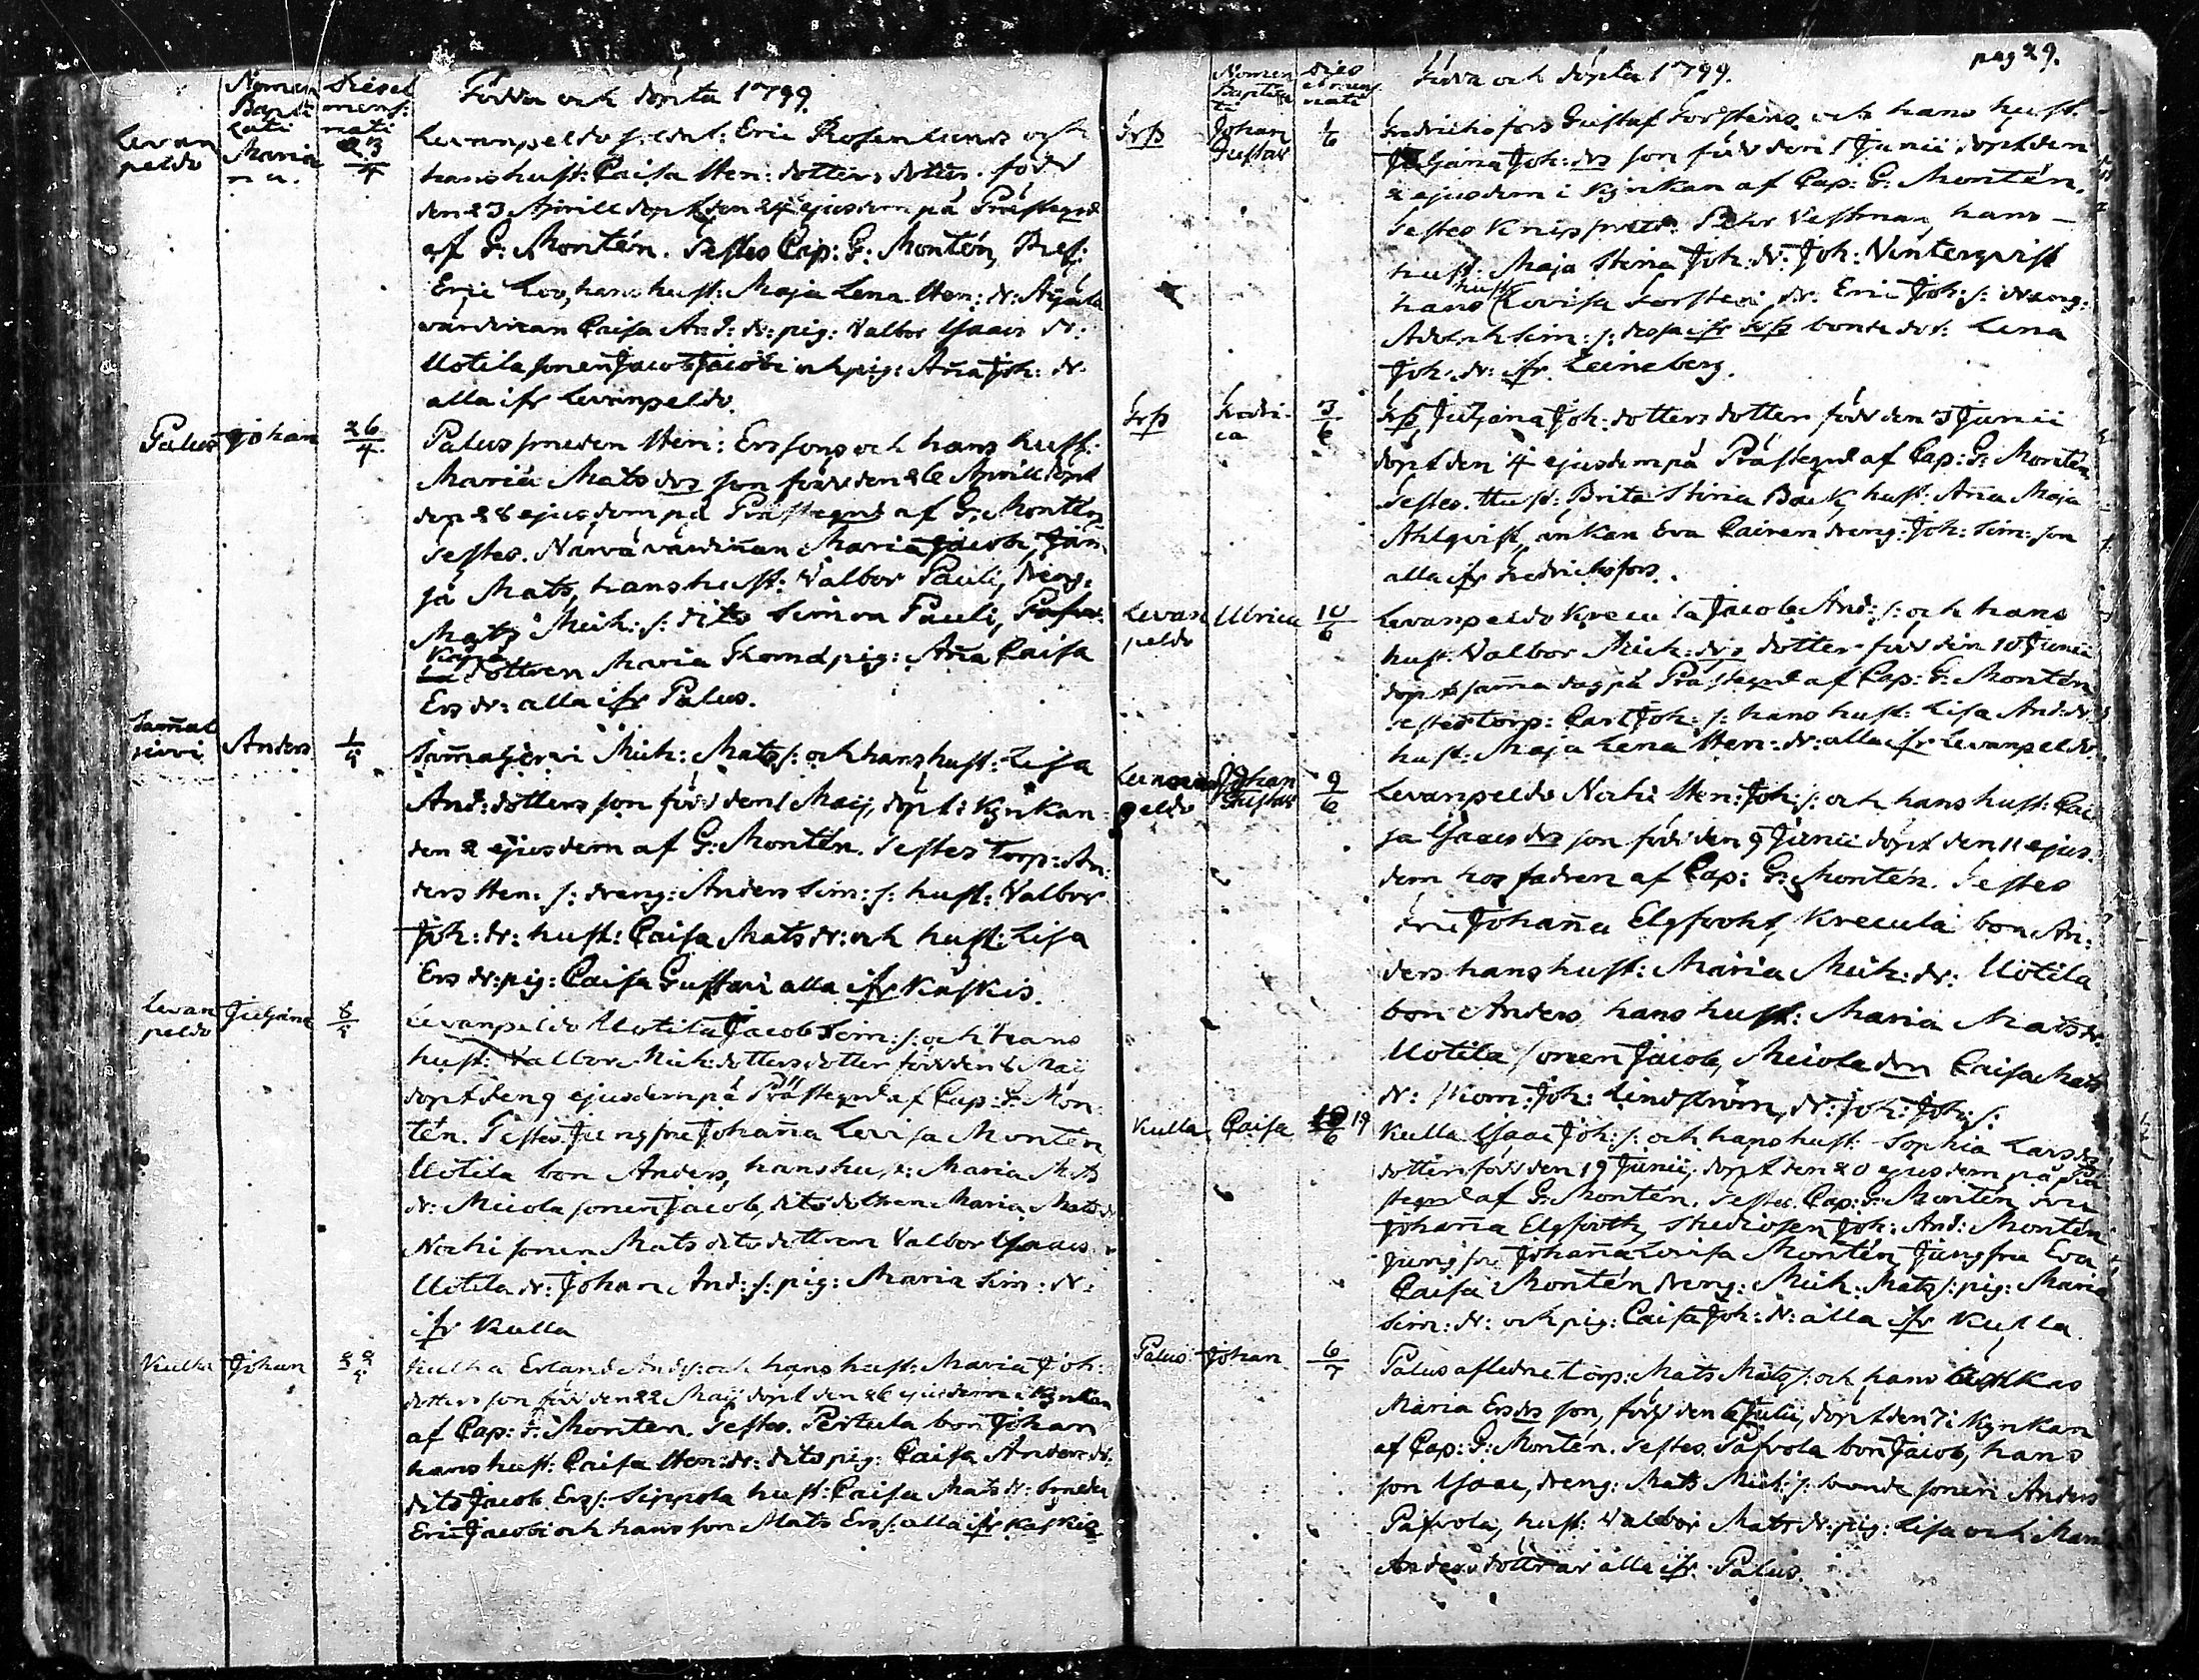 Nomen
Bapti
zati
Dies et
mens:
nati
Födda och döpta 1799.
Levan
peldo
Maria
na.
23/4
Levanpeldo sold: Eric Rosenlunds och
hans hust: Caisa Hen: dotters dotter. född
den 23 Aprill döpt den 24 ejusdem på Prästegrd
af G: Montén. Testes Cap: G: Montén,
Eric Loo, hans hust: Maja Lena Hen: dr:
wärdinnan Caisa And: dr: pig: Valbor Isaacs dr:
Uotila sonen Jacob Jacobi och pig: Aña Joh: dr.
alla ifr Levanpeldo.
Palus
Johan
26/4
Palus smeden Hen: Ers sons och hans hust:
Maria Mats drs son född den 26 Aprill döpt
den 28 ejusdem på Prästegrd af G: Montén
Testes. Närvä värdiñan Maria Jacobi,
Mats, hans hust: Valbor Pauli, dreng:
Mats Mich: s: dito Simon Pauli,
dottren Maria Thom d pig: Aña Caisa
Ers dr: alla ifr Palus.
Sam̃al
jervi
Anders
1/5
Sam̃aljervi Mich: Mats s: och hans hust: Lisa
And: dotters son född den 1 Maij, döpt i Kyrkan
den 2 ejusdem af G: Montén. Testes Torp: An:
ders Hen: s: dreng: Anders Sim: s: hust: Valbor
Joh: dr: hust: Caisa Mats dr: och hust: Lisa
Ers dr: pig: Caisa Gustavi alla ifr Kaskis.
Levan
peldo
Juljana
8/5
Levanpeldo Uotila Jacob Sim: s: och hans
hust: Valbor Mich: dotters dotter född den 8 Maij
döpt den 9 ejusdem på Prästegrd af Cap: G: Mon
tén. Testes Jungfru Johaña Lovisa Montén
Uotila bon Anders, hans hust: Maria Mats
dr: Micola sonen Jacob, dito dottren Maria Mats dr
Nocki sonen Mats dito dottren Valbor Isaacs
Uotila dr: Johan And: s: pig: Maria Sim: dr:
ifr Kulla
Kulla
Johan
22/5
Kulla Erland And: s: och hans hust: Maria Joh:
dotters son född den 22 Maij döpt den 26 ejusdem i Kyrkan
af Cap: G: Montén. Testes. Pertula bon Johan
hans hust: Caisa Hen: dr: dito pig: Caisa Anders dr:
dito Jacob Ers s: Seppola hust: Caisa Mats dr:
Eric Jacobi och hans son Mats Ers s: alla ifr Kaskis
pag 29.
Nomen
Baptiza
ti
dies
et mens:
nati
Födda och döpta 1799.
Frß
Johan
Gustav
1/6
Fredrichsfors Gustaf Forstens och hans hust:
Juljana Joh: drs son född den 1 Junii döpt den
2 ejusdem i Kyrkan af Cap: G: Montén.
Testes Pehr Vestman, hans
hust: Maja Stina Joh: dr: Joh: Vinterqvist
hans hust Lovisa Forsten, dr: Eric Joh: s: dreng:
Adolph Sim: s: dessa ifr Frß bonde dot: Lena
Joh: dr: ifr Leineberg.
Frß
Fredri-
ca
3/6
Frß, Juljana Joh: dotters dotter född den 3 Junii
döpt den 4 ejusdem på Prästegrd af Cap: G: Montén
Testes. Hust: Brita Stina Back, hust: Aña Maja
Ahlqvist, enkan Eva Cairen dreng: Joh: Sim: son
alla ifr Fredrichsfors.
Levan
peldo
Ulrica
10/6
Levanpeldo Krecula Jacob And: s: och hans
hust: Valbor Mich: drs dotter född den 10 Junii
döpt sam̃a dag på Prästegrd af Cap: G: Montén
testes torp: Carl Joh: s: hans hust: Lisa And: dr:
hust: Maja Lena Hen: dr: alla ifr Levanpeldo.
Levan
peldo
Johan
Gustav
9/6
Levanpeldo Nocki Hen: Joh: s: och hans hust: Cai
sa Isaacs drs son född den 9 Junii döpt den 11 ejus:
dem hos fadren af Cap: G: Montén. Testes
fru Johaña Elgfooth, Krecula bon An:
ders hans hust: Maria Mich: dr: Uotila
bon Anders hans hust: Maria Mats dr
Uotila sonen Jacob, Micola drn Caisa Mats
dr: skom: Joh: Lindström, dr: Joh: Joh: s:
Kulla
Caisa
19
Kulla Isaac Joh: s: och hans hust: Sophia Lars drs
dotter född den 19 Junii, döpt den 20 ejusdem på Prä
stegrd af G: Montén. Testes. Cap: G: Montén fru
Johaña Elgfooth, studiosen Joh: And: Montén
jungfru Johaña Lovisa Montén, Jungfru Eva
Caisa Montén dreng: Mich: Mats s: pig: Maria
Sim: dr: och pig: Caisa Joh: dr: alla ifr Kulla
Palus
Johan
6/7
Palus afledne torp: Mats Mats s: och hans
Maria Ers drs son, född den 6 Julii, döpt den 7 i Kyrkan
af Cap: G: Montén. Testes. Påfvola bon Jacob, hans
son Isaac, dreng: Mats Mich: s: bonde sonen Anders
Påfvola, hust: Valbor Mats dr: pig: Lisa och Maria
Anders dottrar alla ifr Palus.